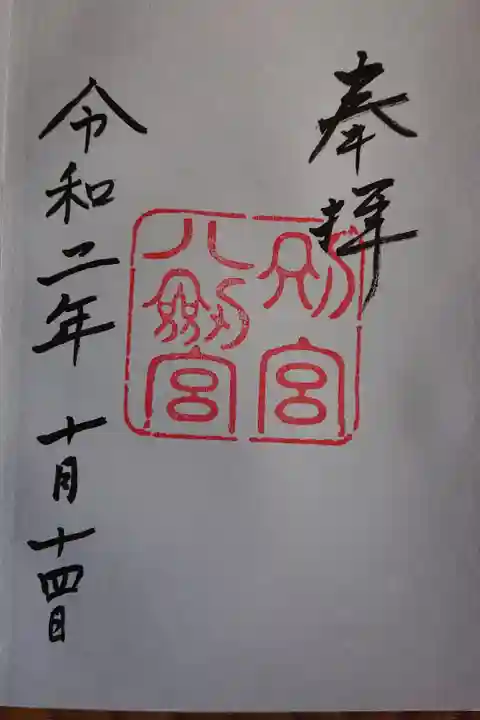 奉拝
別宮
八剱宮
令和二年 十月十四日